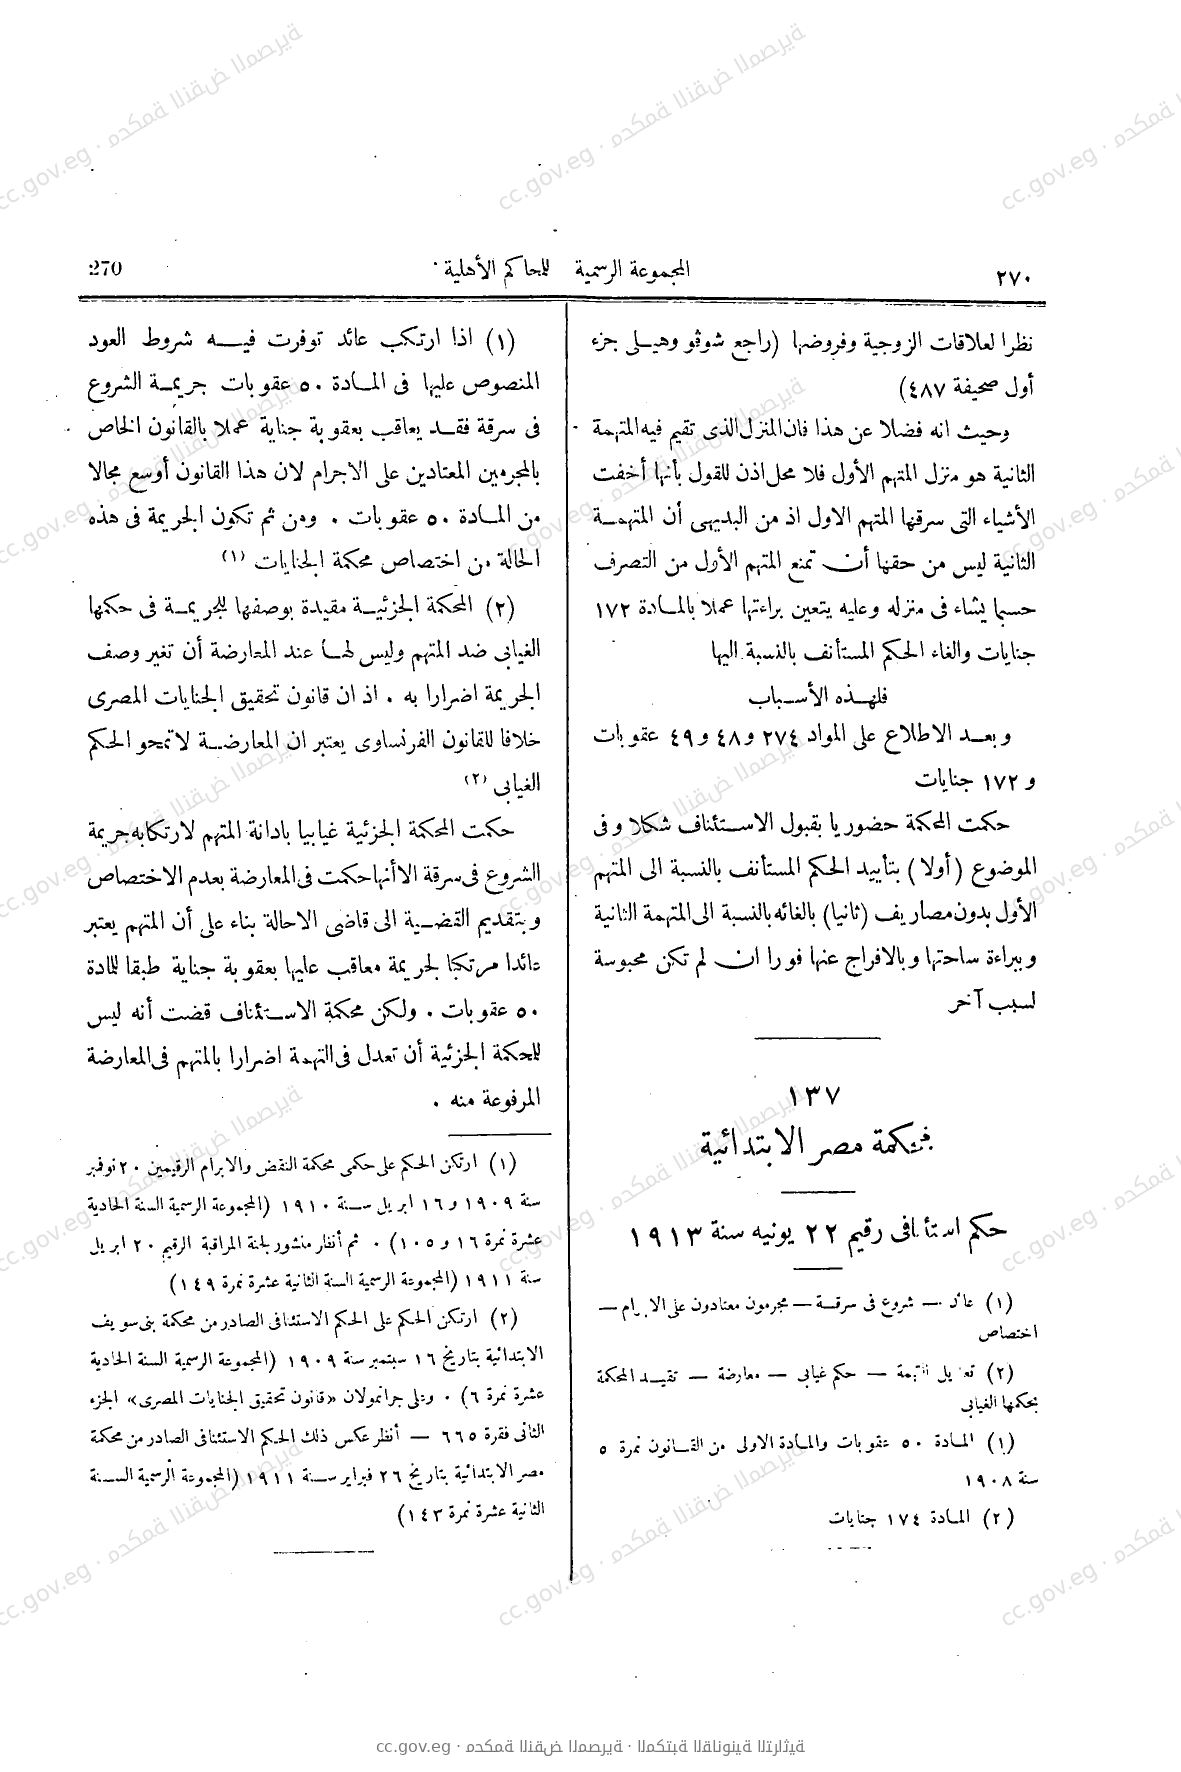 ٢٧٠
المجموعة الرسمية للمحاكم الأهلية
270
نظرا لعلاقات الزوجية وفروضها (راجع شوڤو وهيلى جزء
أول صحيفة ٤٨٧)
وحيث انه فضلا عن هذا فان المنزل الذى تقيم فيه المتهمة
الثانية هو منزل المتهم الأول فلا محل اذن للقول بأنها أخفت
الأشياء التى سرقها المتهم الاول اذ من البديهى أن المتهمة
الثانية ليس من حقها أن تمنع المتهم الأول من التصرف
حسبما يشاء فى منزله وعليه يتعين براءتها عملا بالمادة ١٧٢
جنايات والغاء الحكم المستأنف بالنسبة اليها
فلهذه الأسباب
وبعد الاطلاع على المواد ٢٧٤ و٤٨ و٤٩ عقوبات
و ١٧٢ جنايات
حكمت المحكمة حضوريا بقبول الاستئناف شكلا وفى
الموضوع (أولا) بتأييد الحكم المستأنف بالنسبة الى المتهم
الأول بدون مصاريف (ثانيا) بالغائه بالنسبة الى المتهمة الثانية
وببراءة ساحتها وبالافراج عنها فورا ان لم تكن محبوسة
لسبب آخر
١٣٧
محكمة مصر الابتدائية
حكم استئنافى رقيم ٢٢ يونيه سنة ١٩١٣
(١) عائد — شروع فى سرقة — مجرمون معتادون على الاجرام —
اختصاص
(٢) تعديل التهمة — حكم غيابى — معارضة — تقييد المحكمة
بحكمها الغيابى
(١) المادة ٥٠ عقوبات والمادة الاولى من القانون نمرة ٥
سنة ١٩٠٨
(٢) المادة ١٧٤ جنايات
(١) اذا ارتكب عائد توفرت فيه شروط العود
المنصوص عليها فى المادة ٥٠ عقوبات جريمة الشروع
فى سرقة فقد يعاقب بعقوبة جناية عملا بالقانون الخاص
بالمجرمين المعتادين على الاجرام لان هذا القانون أوسع مجالا
من المادة ٥٠ عقوبات . ومن ثم تكون الجريمة فى هذه
الحالة من اختصاص محكمة الجنايات (١)
(٢) المحكمة الجزئية مقيدة بوصفها للجريمة فى حكمها
الغيابى ضد المتهم وليس لها عند المعارضة أن تغير وصف
الجريمة اضرارا به . اذ ان قانون تحقيق الجنايات المصرى
خلافا للقانون الفرنساوى يعتبر ان المعارضة لا تمحو الحكم
الغيابى (٢)
حكمت المحكمة الجزئية غيابيا بادانة المتهم لارتكابه جريمة
الشروع فى سرقة الا أنها حكمت فى المعارضة بعدم الاختصاص
وبتقديم القضية الى قاضى الاحالة بناء على أن المتهم يعتبر
عائدا مرتكبا لجريمة معاقب عليها بعقوبة جناية طبقا للمادة
٥٠ عقوبات . ولكن محكمة الاستئناف قضت أنه ليس
للمحكمة الجزئية أن تعدل فى التهمة اضرارا بالمتهم فى المعارضة
المرفوعة منه .
(١) ارتكن الحكم على حكمى محكمة النقض والابرام الرقيمين ٢٠ نوفمبر
سنة ١٩٠٩ و ١٦ ابريل سنة ١٩١٠ (المجموعة الرسمية السنة الحادية
عشرة نمرة ١٦ و ١٠٥) . ثم أنظر منشور لجنة المراقبة الرقيم ٢٠ ابريل
سنة ١٩١١ (المجموعة الرسمية السنة الثانية عشرة نمرة ١٤٩)
(٢) ارتكن الحكم على الحكم الاستئنافى الصادر من محكمة بنى سويف
الابتدائية بتاريخ ١٦ سبتمبر سنة ١٩٠٩ (المجموعة الرسمية السنة الحادية
عشرة نمرة ٦) . وعلى جرانمولان «قانون تحقيق الجنايات المصرى» الجزء
الثانى فقرة ٦٦٥ — أنظر عكس ذلك الحكم الاستئنافى الصادر من محكمة
مصر الابتدائية بتاريخ ٢٦ فبراير سنة ١٩١١ (المجموعة الرسمية السنة
الثانية عشرة نمرة ١٤٣)
cc.gov.eg · محكمة النقض المصرية · المكتبة القانونية التراثية